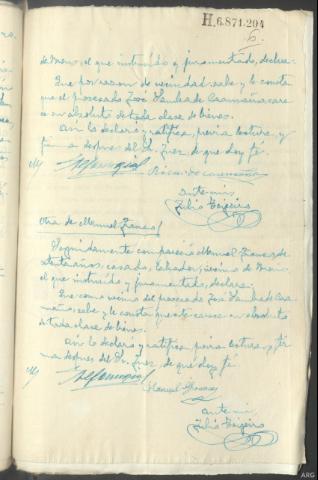 H.6.871.204
6
de Meno, el que instruído y juramentado, declara:
Que por razon de vecindad sabe y le consta
que el procesado José Samba de Caamaño care
ce en absoluto de toda clase de bienes.
Asi lo declaró y ratifica, previa lectura, y
firma despues del Sr. Juez, de que doy fé.
Ricardo Caamaño
ante mi,
Julio Teijeiro
Otra de Manuel Franco
Seguidamente compareció Manuel Franco, de
años, casado, labrador, vecino de
el que instruído y juramentado, declara:
Que como vecino del procesado José Samba de Caa
maño, sabe y le consta que este carece en absoluto
de toda clase de bienes.
Asi lo declaró y ratifica, previa lectura, y fir
ma despues del Sr. Juez, de que doy fé
Manuel Franco
ante mi
Julio Teijeiro
ARG